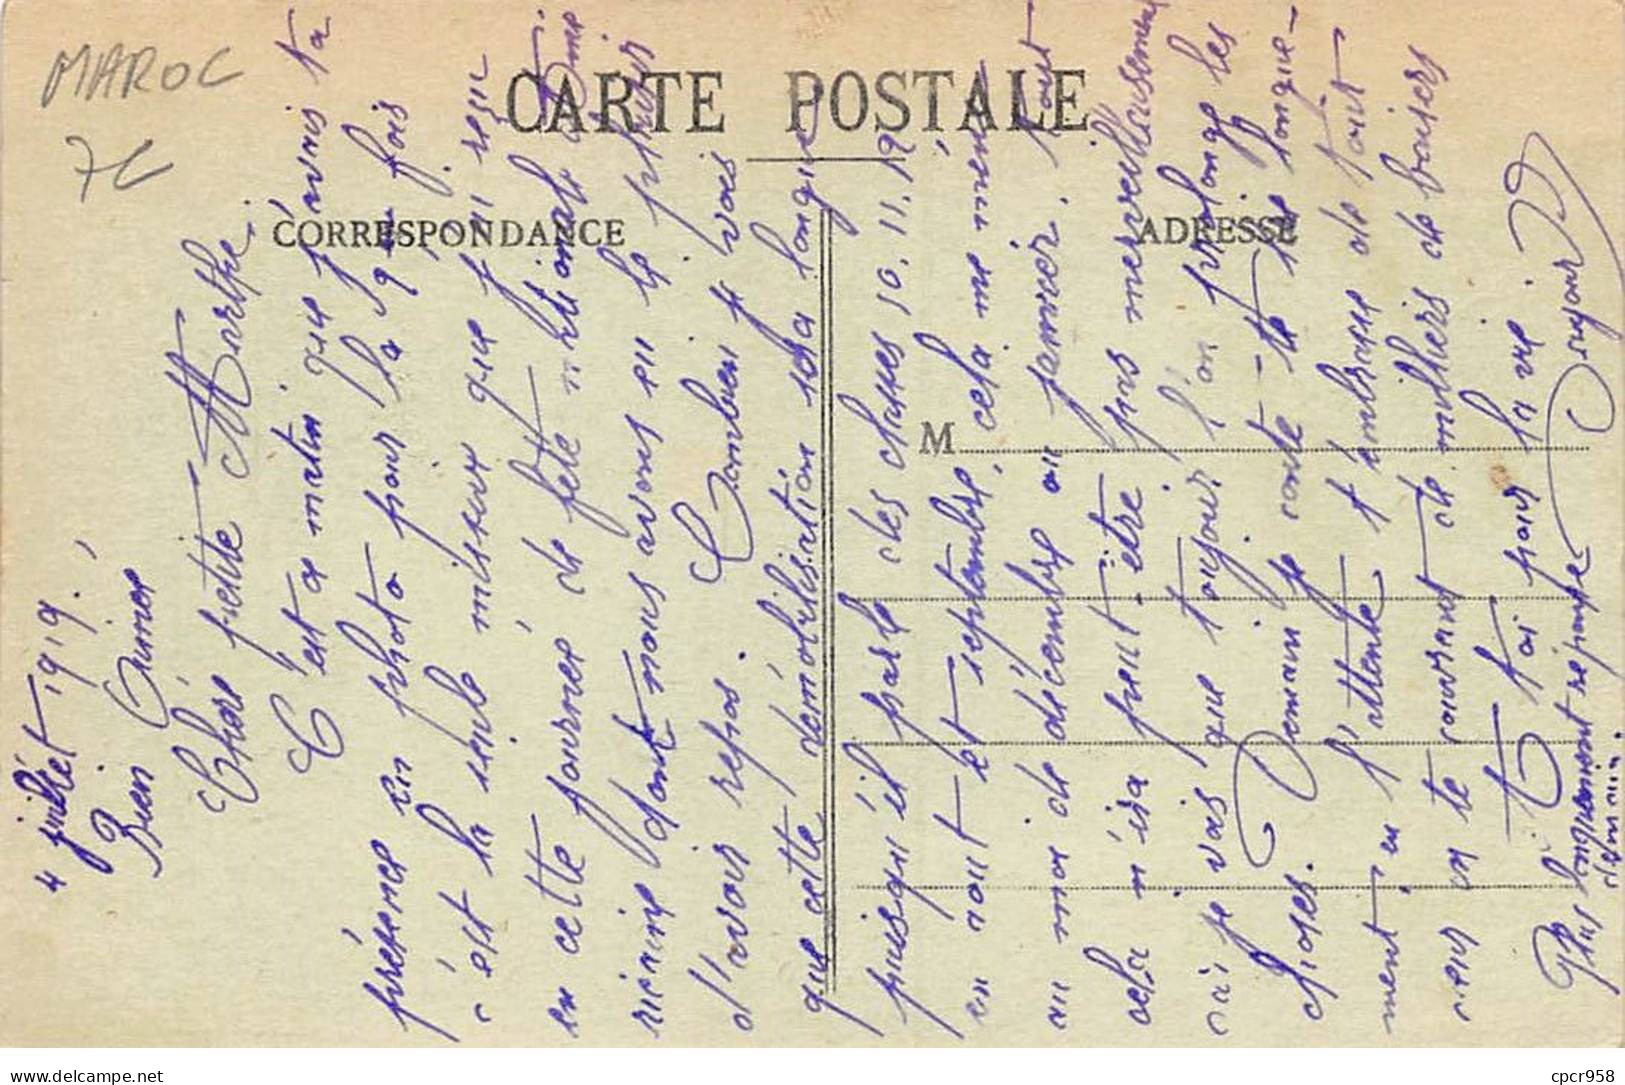 MAROC
7€
CARTE POSTALE
CORRESPONDANCE
ADRESSE
M
4 juillet 1919.
Bien Aimée
Chère petite Marthe,
C'est ce matin que j'avais ta
présence en photo pour la 9e fois
c'est la seule missive que j'ai reçue
en cette journée de fête nationale
dont nous avons eu le plaisir
d'avoir repos. Combien je vois
que cette démobilisation sera longue
puisqu'il parle des classes 10. 11. 12
en août et septembre, cela me mène
au moi de décembre ou janvier. Tout
cela n'ira peut-être pas merveilleusement
car je vois que toujours l'on prolonge les
choses. Demain je conte te lire longue-
ment en l'attente t'embrasse de tout
cœur en te couvrant de milliers de baisers
à toi pour la vie
Plus longuement réponse
demain.
cpcr958